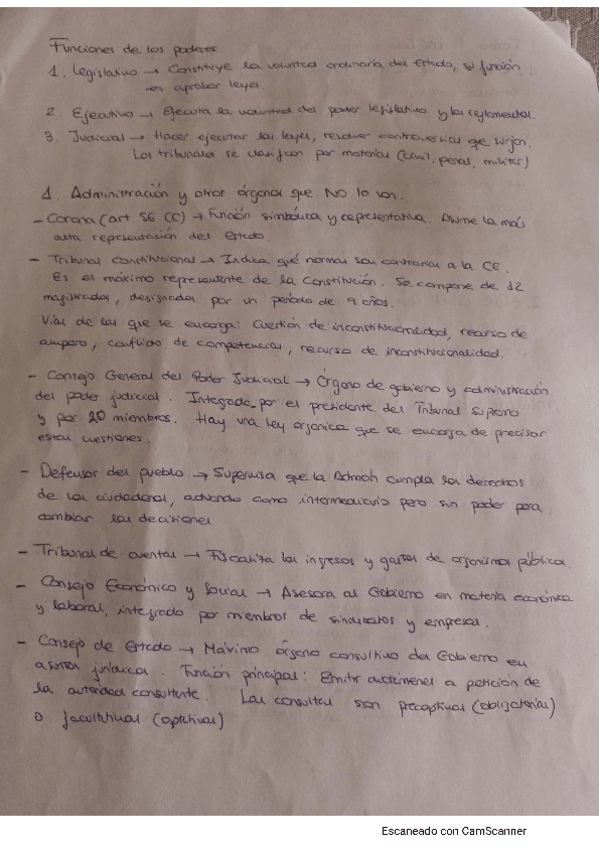 Funciones de los poderes
1. Legislativo → Constituye la voluntad ordinaria del Estado, su función
es aprobar leyes.
2 Ejecutivo → Ejecuta la voluntad del poder legislativo y los reglamentos.
3. Judicial → Hacer ejecutar las leyes, resolver controversias que surjan.
Los tribunales se clasifican por materias (civil, penal, militar)
1. Administración y otros órganos que NO lo son.
- Corona (art 56 CC) → Función simbólica y representativa. Asume la más
alta representación del Estado.
- Tribunal constitucional → Indica qué normas son contrarias a la CE.
Es el máximo representante de la Constitución. Se compone de 12
magistrados, designados por un período de 9 años.
Vías de las que se encarga: Cuestión de inconstitucionalidad, recurso de
amparo, conflicto de competencias, recurso de inconstitucionalidad.
- Consejo General del Poder Judicial → Órgano de gobierno y administración
del poder judicial. Integrado por el presidente del Tribunal Supremo
y por 20 miembros. Hay una ley orgánica que se encarga de precisar
estas cuestiones.
- Defensor del pueblo → Supervisa que la Admón cumpla los derechos
de los ciudadanos, actuando como intermediario pero sin poder para
cambiar las decisiones
- Tribunal de cuentas → Fiscaliza los ingresos y gastos de organismos públicos.
- Consejo Económico y Social → Asesora al Gobierno en materia económica
y laboral, integrado por miembros de sindicatos y empresas.
- Consejo de Estado → Máximo órgano consultivo del Gobierno en
asuntos jurídicos. Función principal: Emitir dictámenes a petición de
la autoridad consultante. Las consultas son preceptivas (obligatorias)
o facultativas (optativas)
Escaneado con CamScanner